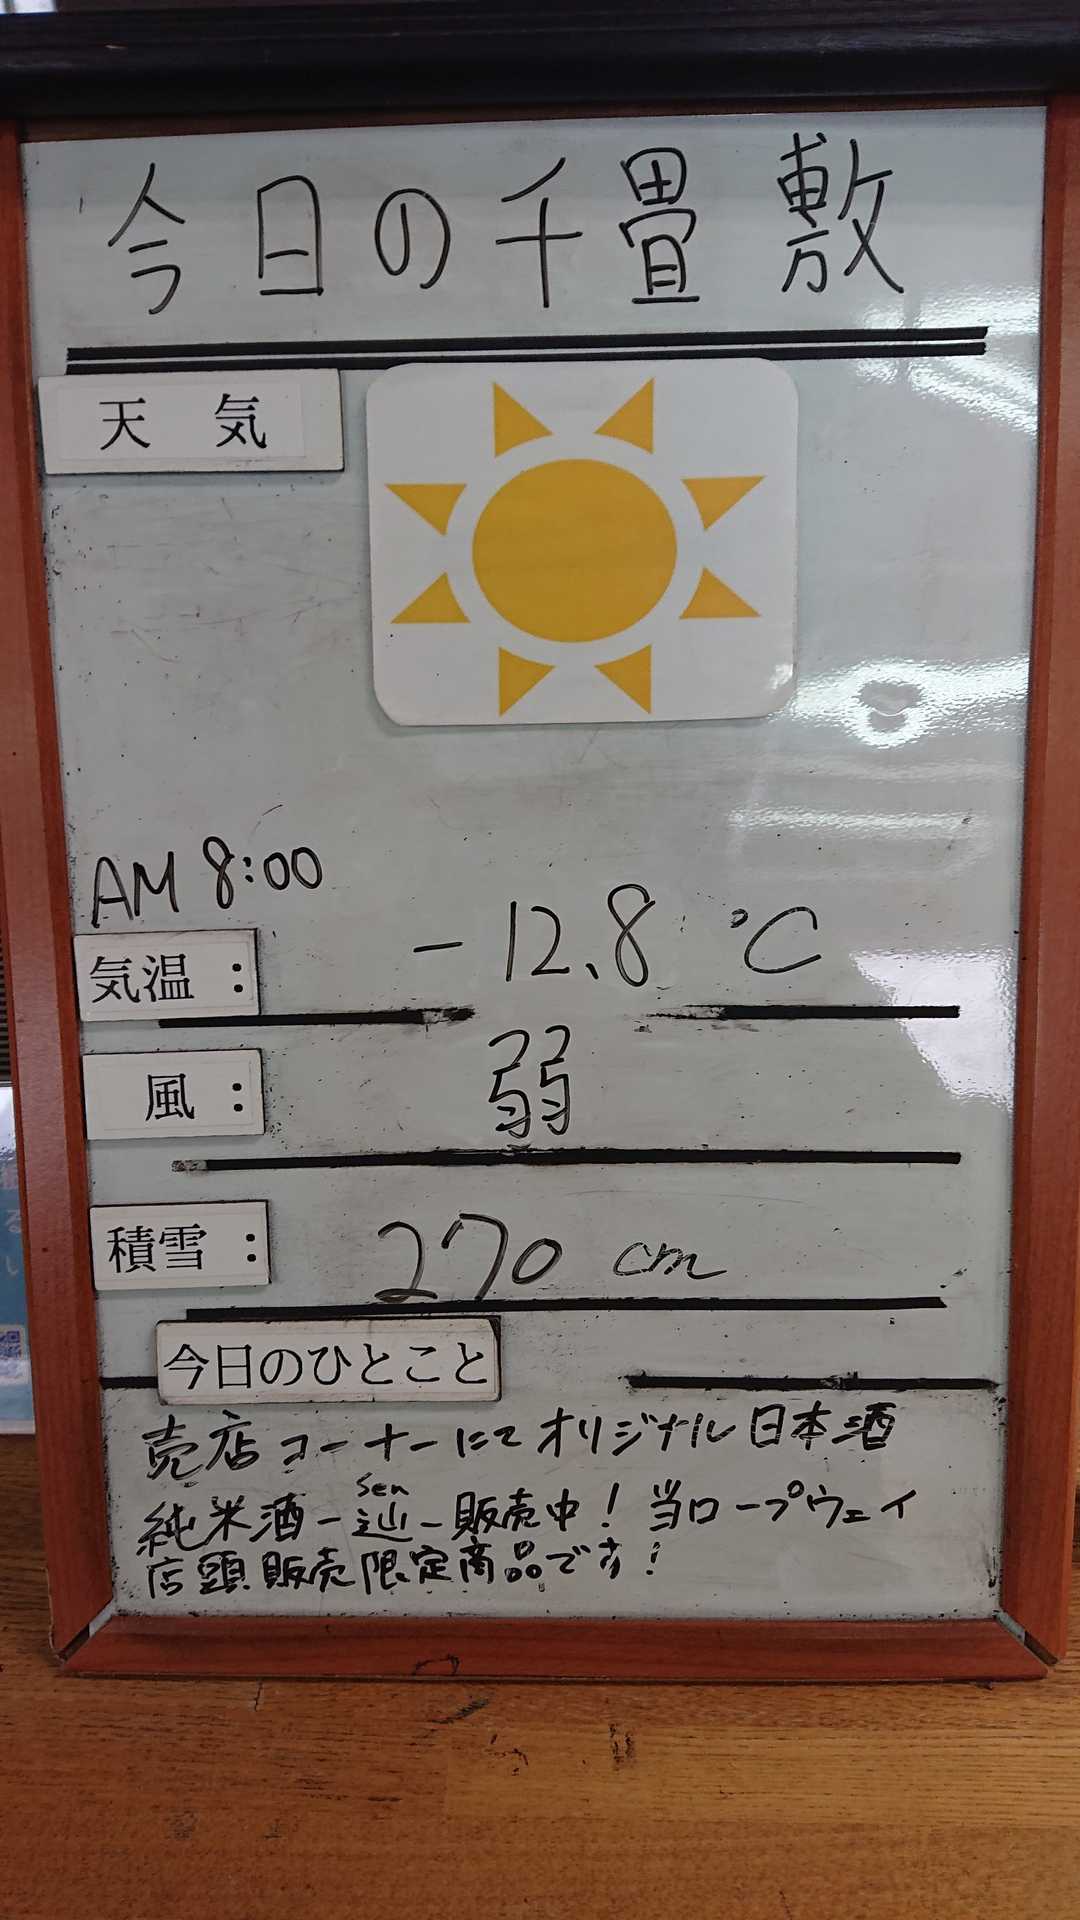 今日の千畳敷
天気
AM 8:00
気温: -12.8 ℃
風: 弱
積雪: 270 cm
今日のひとこと
売店コーナーにてオリジナル日本酒
Sen
純米酒-辿-販売中!当ロープウェイ
店頭販売限定商品です!